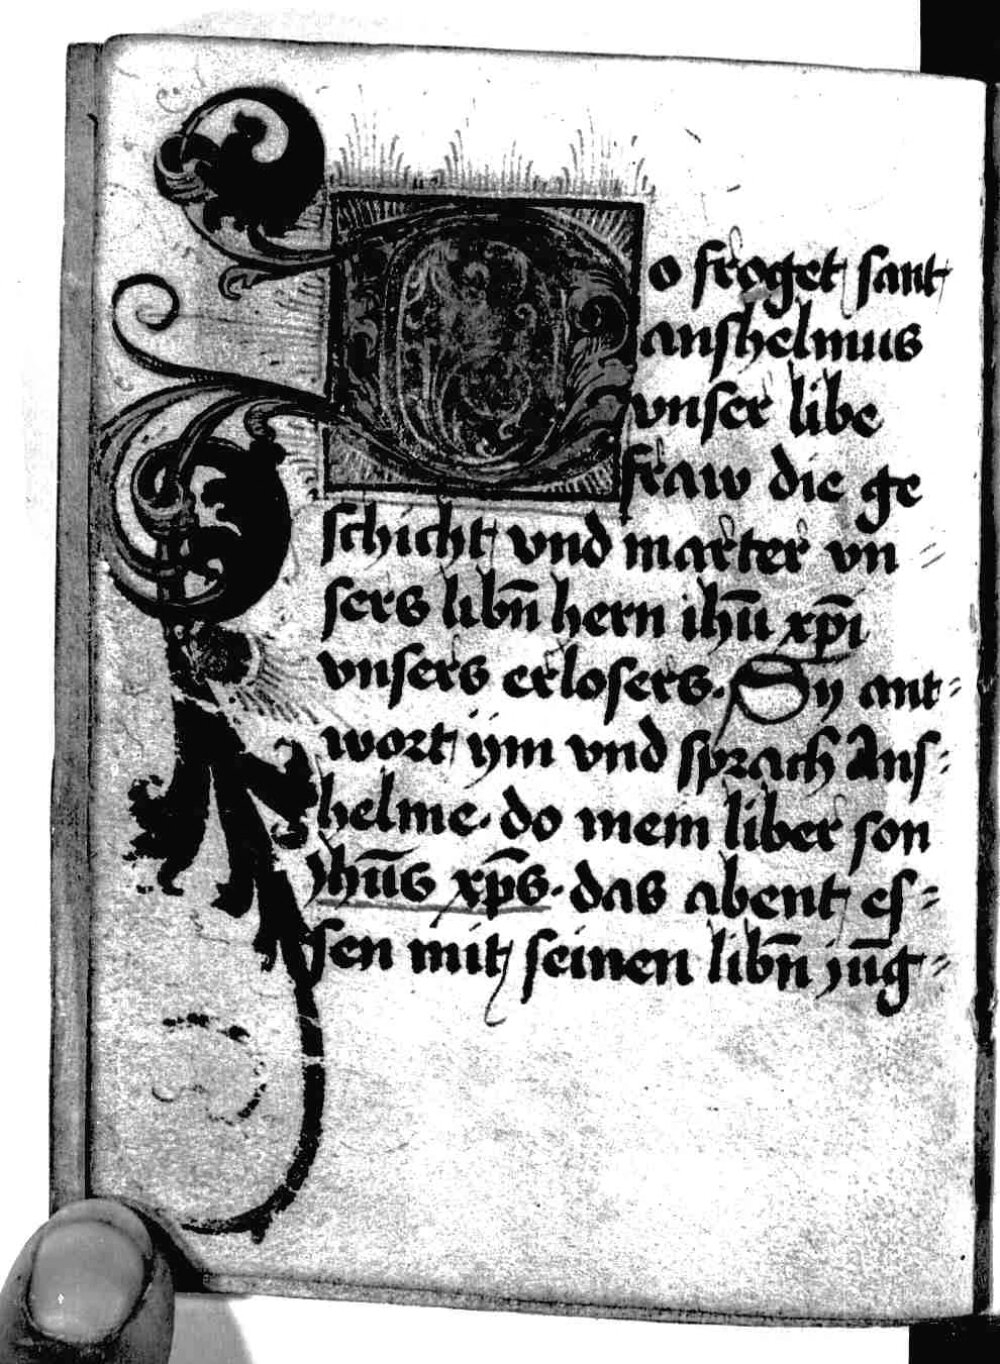 Do froget sant
anshelmus
vnser libe
fraw die ge
schicht vnd marter vn =
sers libn̄ hern ihū xp̄i
vnsers erlosers. Sy ant=
wort ÿm vnd sprach Ans=
helme. do mein liber son
Jhūs xp̄s. das abent es=
sen mit seinen libn̄ jūg=